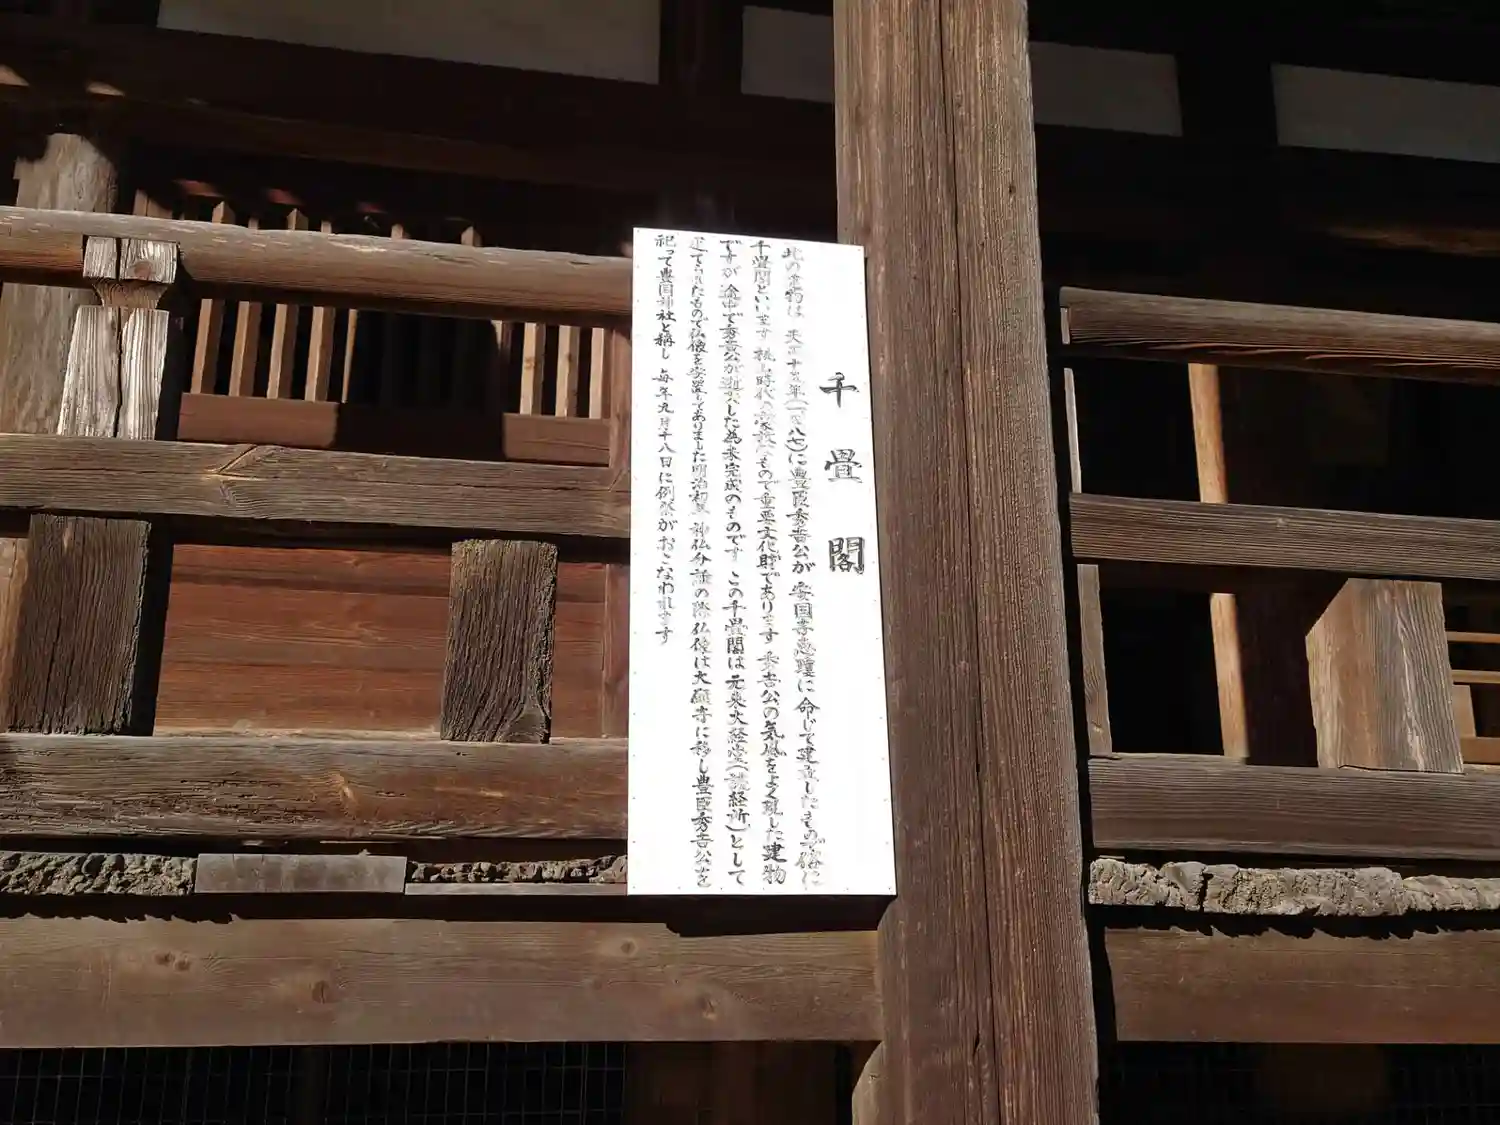 千畳閣
此の建物は 天正十五年(一五八七)に豊臣秀吉公が 安国寺恵瓊に命じて建立したもので俗に
千畳閣といいます 桃山時代の すもので重要文化財であります 秀吉公の気風をよく現した建物
ですが 途中で秀吉公が逝去した為未完成のものです この千畳閣は元来大経堂(読経所)として
建てられたもので仏像を安置してありました明治初年 神仏分離の際仏像は大願寺に移し豊臣秀吉公を
祀って豊国神社と稱し 毎年九月十八日に例祭がおこなわれます